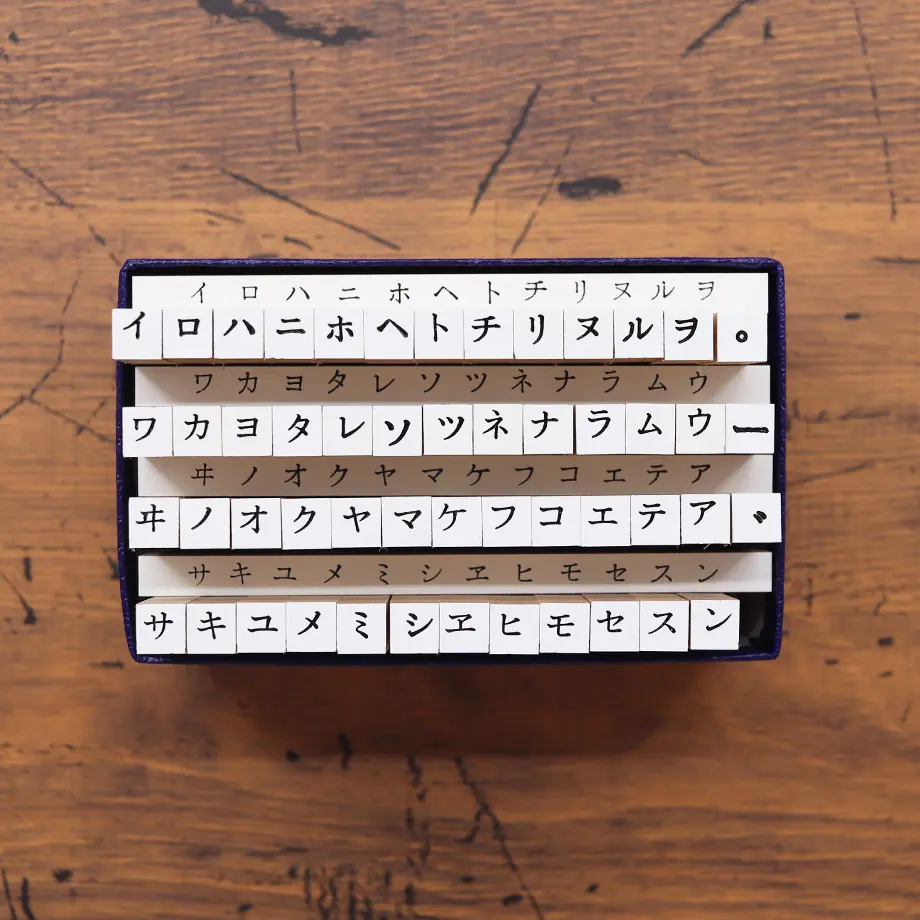 イロハニホヘトチリヌルヲ
イロハニホヘトチリヌルヲ。
ワカヨタレソツネナラムウ
ワカヨタレソツネナラムウー
ヰノオクヤマケフコエテア
ヰノオクヤマケフコエテア゛
サキユメミシヱヒモセスン
サキユメミシヱヒモセスン